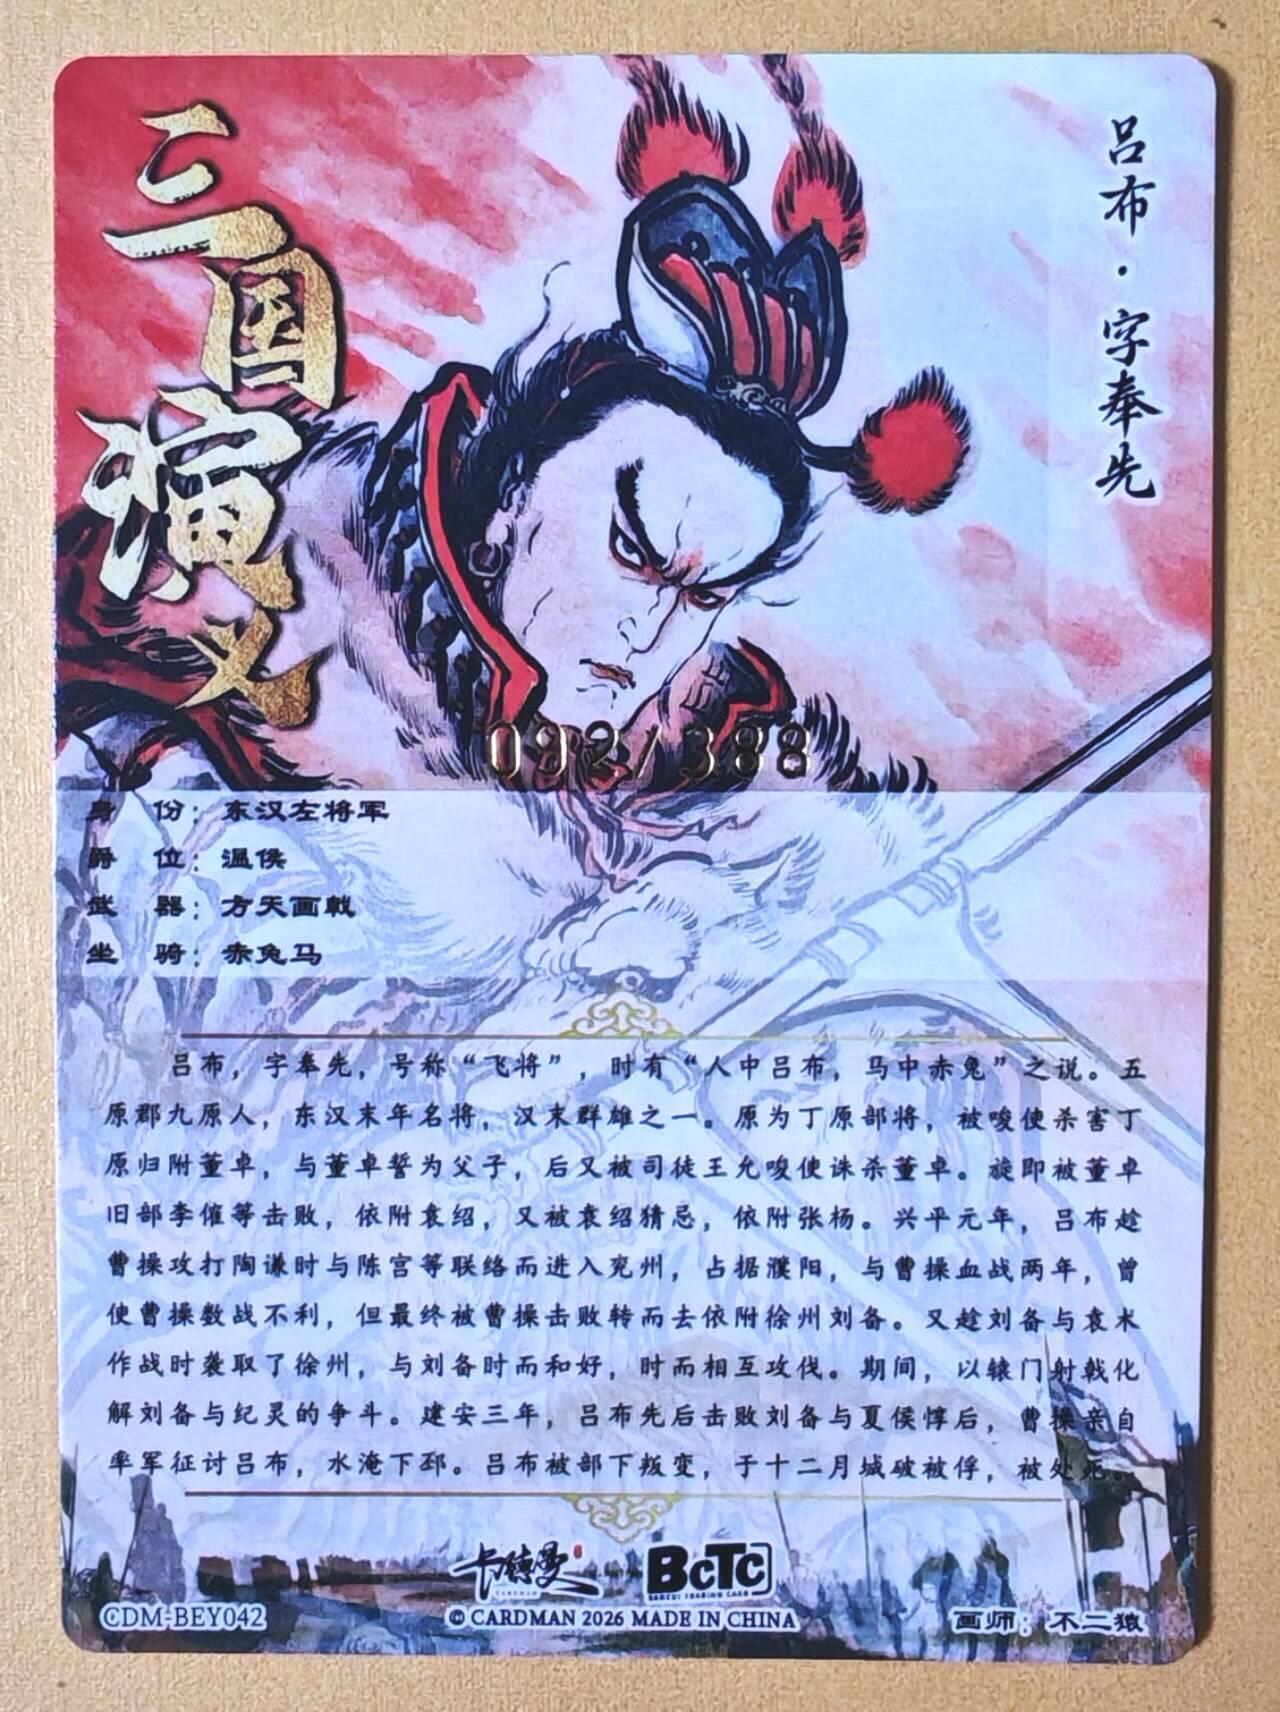 三国演义
吕布·字奉先
092/388
身 份：东汉左将军
爵 位：温侯
武 器：方天画戟
坐 骑：赤兔马
吕布，字奉先，号称“飞将”，时有“人中吕布，马中赤兔”之说。五
原郡九原人，东汉末年名将，汉末群雄之一。原为丁原部将，被唆使杀害丁
原归附董卓，与董卓誓为父子，后又被司徒王允唆使诛杀董卓。旋即被董卓
旧部李傕等击败，依附袁绍，又被袁绍猜忌，依附张杨。兴平元年，吕布趁
曹操攻打陶谦时与陈宫等联络而进入兖州，占据濮阳，与曹操血战两年，曾
使曹操数战不利，但最终被曹操击败转而去依附徐州刘备。又趁刘备与袁术
作战时袭取了徐州，与刘备时而和好，时而相互攻伐。期间，以辕门射戟化
解刘备与纪灵的争斗。建安三年，吕布先后击败刘备与夏侯惇后，曹操亲自
率军征讨吕布，水淹下邳。吕布被部下叛变，于十二月城破被俘，被处死。
卡德曼
CARDMAN
BCTC
BANCUI TRADING CARD
CDM-BEY042
© CARDMAN 2026 MADE IN CHINA
画师：不二猿